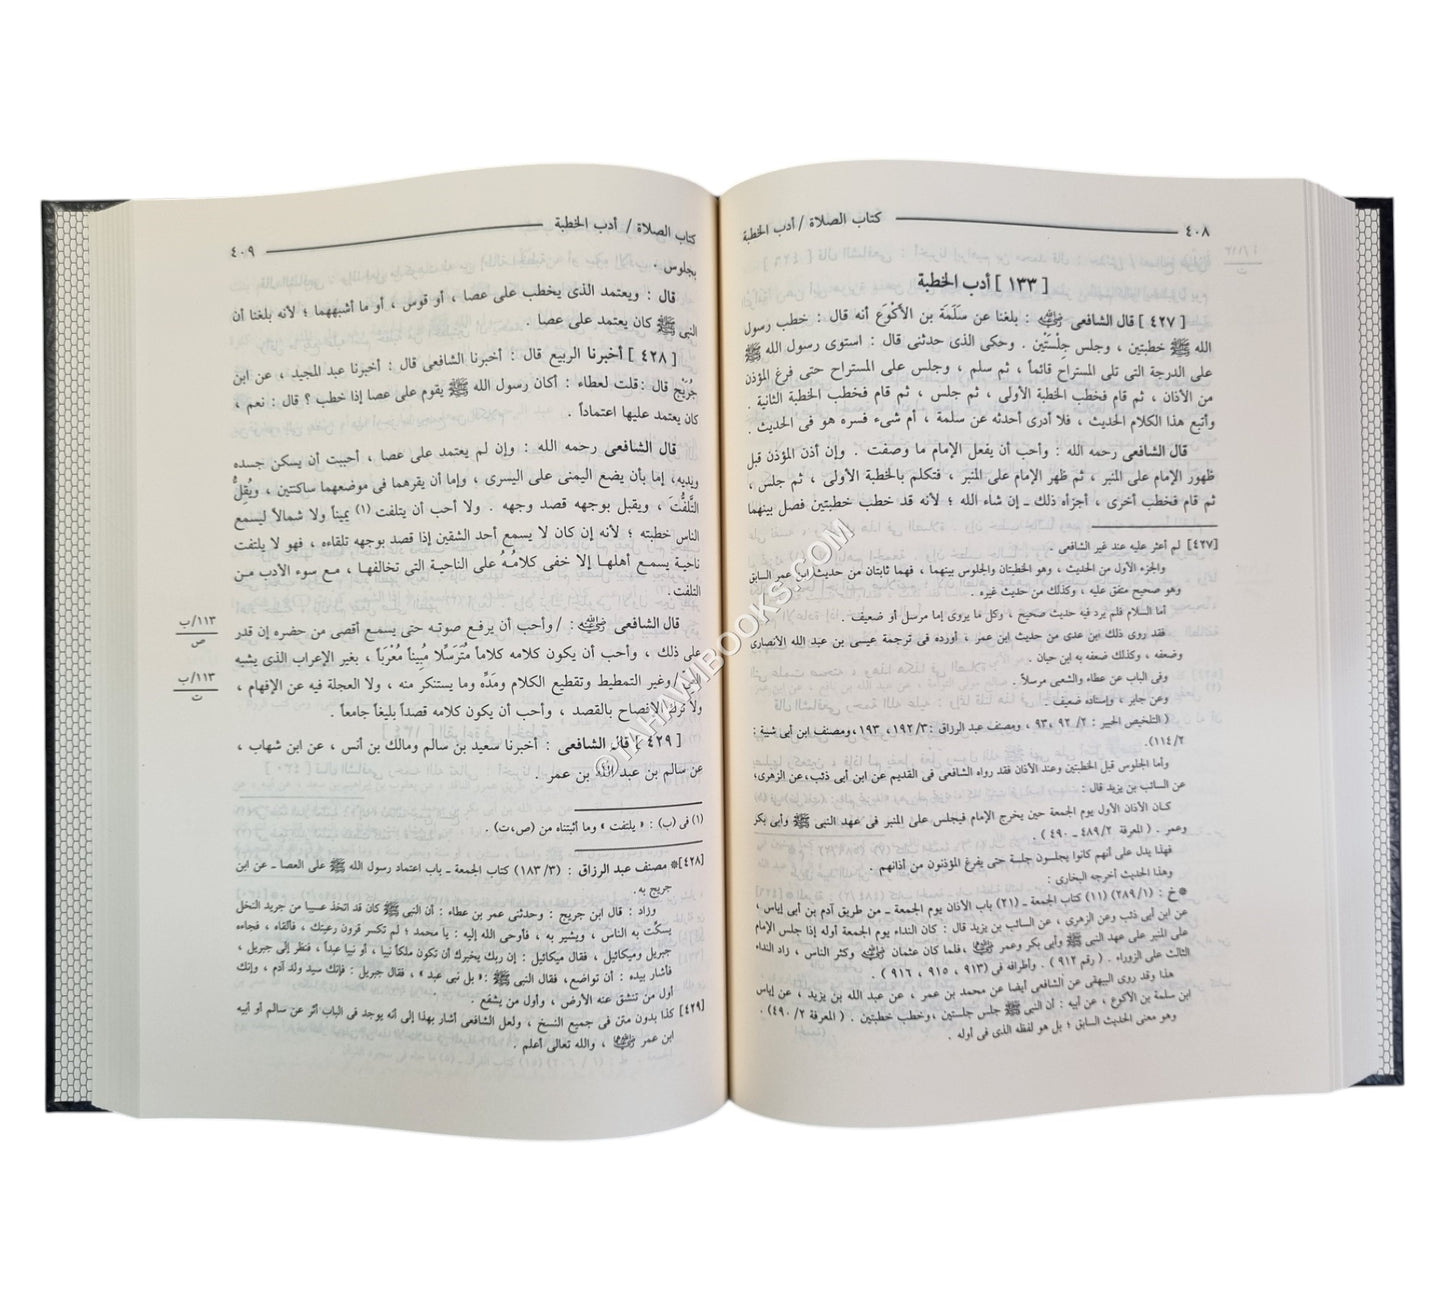 ٤٠٨ كتاب الصلاة / أدب الخطبة
[ ١٣٣ ] أدب الخطبة
[ ٤٢٧ ] قال الشافعى رضي الله عنه : بلغنا عن سَلَمَة بن الأَكْوَع أنه قال : خطب رسول
الله ﷺ خطبتين ، وجلس جِلْسَتَيْن . وحكى الذى حدثنى قال : استوى رسول الله ﷺ
على الدرجة التى تلى المستراح قائماً ، ثم سلم ، وجلس على المستراح حتى فرغ المؤذن
من الأذان ، ثم قام فخطب الخطبة الأولى ، ثم جلس ، ثم قام فخطب الخطبة الثانية .
وأتبع هذا الكلام الحديث ، فلا أدرى أحدثه عن سلمة ، أم شىء فسره هو فى الحديث .
قال الشافعى رحمه الله : وأحب أن يفعل الإمام ما وصفت . وإن أذن المؤذن قبل
ظهور الإمام على المنبر ، ثم ظهر الإمام على المنبر ، فتكلم بالخطبة الأولى ، ثم جلس ،
ثم قام فخطب أخرى ، أجزأه ذلك ـ إن شاء الله ؛ لأنه قد خطب خطبتين فصل بينهما
[٤٢٧] لم أعثر عليه عند غير الشافعى .
والجزء الأول من الحديث ، وهو الخطبتان والجلوس بينهما ، فهما ثابتان من حديث ابن عمر السابق
وهو صحيح متفق عليه ، وكذلك من حديث غيره .
أما السلام فلم يرد فيه حديث صحيح ، وكل ما يروى إما مرسل أو ضعيف .
فقد روى ذلك ابن عدى من حديث ابن عمر ، أورده فى ترجمة عيسى بن عبد الله الأنصارى
وضعفه ، وكذلك ضعفه به ابن حبان .
وفى الباب عن عطاء والشعبى مرسلاً .
وعن جابر ، وإسناده ضعيف .
( التلخيص الحبير : ٢/ ٩٢، ٩٣ ، ومصنف عبد الرزاق :٣/ ١٩٢، ١٩٣، ومصنف ابن أبى شيبة :
٢/ ١١٤).
وأما الجلوس قبل الخطبتين وعند الأذان فقد رواه الشافعى فى القديم عن ابن أبى ذئب،عن الزهرى،
عن السائب بن يزيد قال :
كـان الأذان الأول يوم الجمعة حين يخرج الإمام فيجلس على المنبر فى عهد النبى ﷺ وأبى بكر
وعمر . ( المعرفة ٢/ ٤٨٩ ـ ٤٩٠ ) .
فهذا يدل على أنهم كانوا يجلسون جلسة حتى يفرغ المؤذنون من أذانهم .
وهذا الحديث أخرجه البخارى :
* خ : (١/ ٢٨٩) (١١) كتاب الجمعة ـ (٢١) باب الأذان يوم الجمعة ـ من طريق آدم بن أبى إياس ،
عن ابن أبى ذئب وعن الزهرى ، عن السائب بن يزيد قال : كان النداء يوم الجمعة أوله إذا جلس الإمام
على المنبر على عهد النبى ﷺ وأبى بكر وعمر رضي الله عنهما ،فلما كان عثمان رضي الله عنه وكثر الناس ، زاد النداء
الثالث على الزوراء . ( رقم ٩١٢ ) . وأطرافه فى (٩١٣ ، ٩١٥ ، ٩١٦ ) .
هذا وقد روى البيهقى عن الشافعى أيضا عن محمد بن عمر ، عن عبد الله بن يزيد ، عن إياس
ابن سلمة بن الأكوع ، عن أبيه : أن النبى ﷺ جلس جلستين ،وخطب خطبتين . ( المعرفة ٢/ ٤٩٠) .
وهو معنى الحديث السابق ؛ بل هو لفظه الذى فى أوله .
كتاب الصلاة / أدب الخطبة ٤٠٩
بجلوس .
قال : ويعتمد الذى يخطب على عصا ، أو قوس ، أو ما أشبههما ؛ لأنه بلغنا أن
النبى ﷺ كان يعتمد على عصا .
[ ٤٢٨ ] أخبرنا الربيع قال : أخبرنا الشافعى قال : أخبرنا عبد المجيد ، عن ابن
جُرَيْج قال :قلت لعطاء : أكان رسول الله ﷺ يقوم على عصا إذا خطب ؟ قال : نعم ،
كان يعتمد عليها اعتماداً .
قال الشافعى رحمه الله : وإن لم يعتمد على عصا ، أحببت أن يسكن جسده
ويديه، إما بأن يضع اليمنى على اليسرى ، وإما أن يقرهما فى موضعهما ساكنتين ، ويُقِلُّ
التَّلفُّتَ ، ويقبل بوجهه قصد وجهه . ولا أحب أن يتلفت (١) يميناً ولا شمالاً ليسمع
الناس خطبته ؛ لأنه إن كان لا يسمع أحد الشقين إذا قصد بوجهه تلقاءه، فهو لا يلتفت
ناحية يسمـع أهلهـا إلا خفى كلامُـهُ على الناحيـة التى تخالفهـا ، مـع سوء الأدب مـن
التلفت.
١١٣/ب
ص
قال الشافعى رضي الله عنه : /وأحب أن يرفـع صوتـه حتى يسمـع أقصى من حضره إن قدر
على ذلك ، وأحب أن يكون كلامه كلاماً مُتَرَسِّلا مُبيناً مُعْرَباً ، بغير الإعراب الذى يشبه
١١٣/ب
ت
العى /وغير التمطيط وتقطيع الكلام ومَدِّه وما يستنكر منه ، ولا العجلة فيه عن الإفهام ،
ولا ترك الإفصاح بالقصد ، وأحب أن يكون كلامه قصداً بليغاً جامعاً .
[ ٤٢٩ ] قال الشافعى : أخبرنا سعيد بن سالم ومالك بن أنس ، عن ابن شهاب ،
عن سالم بن عبد الله بن عمر .
(١) فى (ب) : « يلتفت » وما أثبتناه من (ص،ت) .
[٤٢٨]* مصنف عبد الرزاق : (٣/ ١٨٣) كتاب الجمعة ـ باب اعتماد رسول الله ﷺ على العصا ـ عن ابن
جريج به.
وزاد : قال ابن جريج : وحدثنى عمر بن عطاء : أن النبى ﷺ كان قد اتخذ عسيبا من جريد النخل
يسكِّت به الناس ، ويشير به ، فأوحى الله إليه : يا محمد ؛ لم تكسر قرون رعيتك ، فألقاه ، فجاءه
جبريل وميكائيل ، فقال ميكائيل : إن ربك يخيرك أن تكون ملكاً نبيا ، أو نبيا عبداً ، فنظر إلى جبريل ،
فأشار بيده : أن تواضع، فقال النبى ﷺ :« بل نبى عبد » ، فقال جبريل : فإنك سيد ولد آدم ، وإنك
أول من تنشق عنه الأرض ، وأول من يشفع .
[٤٢٩] كذا بدون متن فى جميع النسخ ، ولعل الشافعى أشار بهذا إلى أنه يوجد فى الباب أثر عن سالم أو أبيه
ابن عمر رضي الله عنهما ، والله تعالى أعلم .
©TAHAWIBOOKS.COM